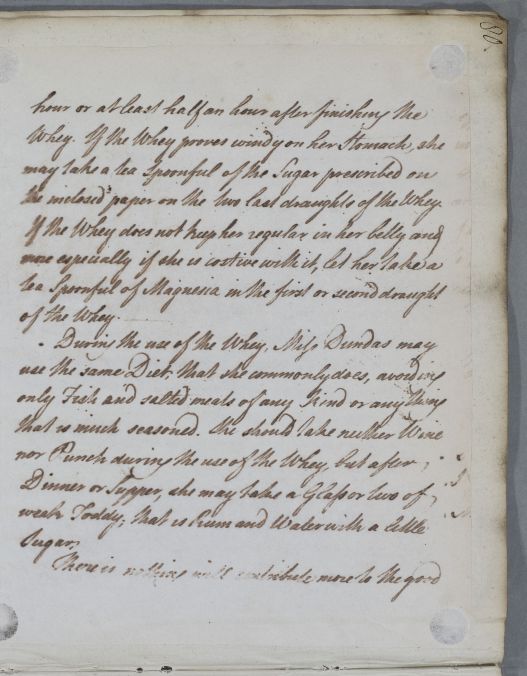 80.
hour or at least half an hour after finishing the
Whey. If the Whey proves windy on her Stomach, she
may take a tea Spoonful of the Sugar prescribed on
the inclosed paper on the two last draughts of the Whey.
If the Whey does not keep her regular in her belly and
more especially if she is costive with it, let her take a
tea Spoonful of Magnesia in the first or second draught
of the Whey.
During the use of the Whey, Miss Dundas may
use the same Diet, that she commonly does, avoiding
only Fish and salted meats of any Kind or any thing
that is much seasoned. She should take neither Wine
nor Punch during the use of the Whey, but after
Dinner or Supper, she may take a Glass or two of
weak Toddy, that is Rum and Water with a little
Sugar.
There is nothing will contribute more to the good